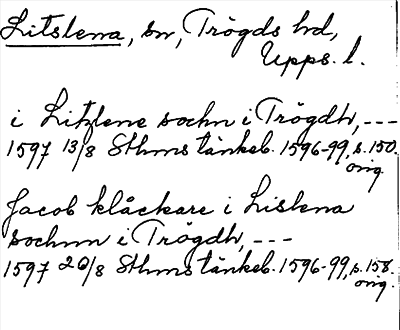 Litslena, sn, Trögds hd,
Upps. l.
i Litzlene sochn i Trögdh, ---
1597 13/8 Sthms tänkeb. 1596-99, s. 150.
orig.
Jacob klåckare i Lislena
sochnn i Trögdh, ---
1597 20/8 Sthms tänkeb. 1596-99, s. 158.
orig.